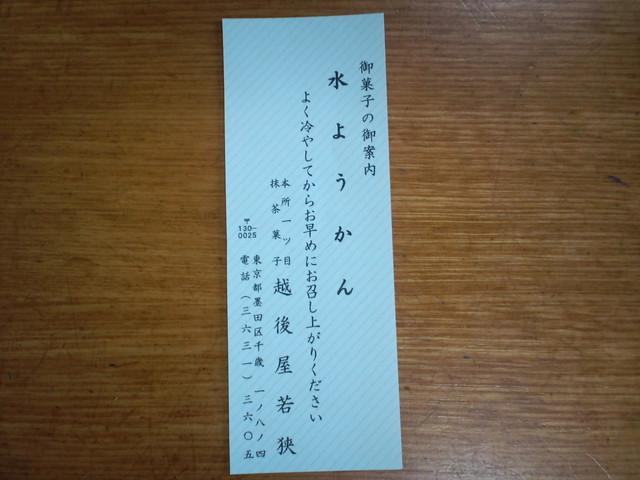 御菓子の御案内
水ようかん
よく冷やしてからお早めにお召し上がりください
本所一ツ目
抹茶菓子
越後屋若狭
〒
130-
0025
東京都墨田区千歳 一ノ八ノ四
電話(三六三一)三六〇五